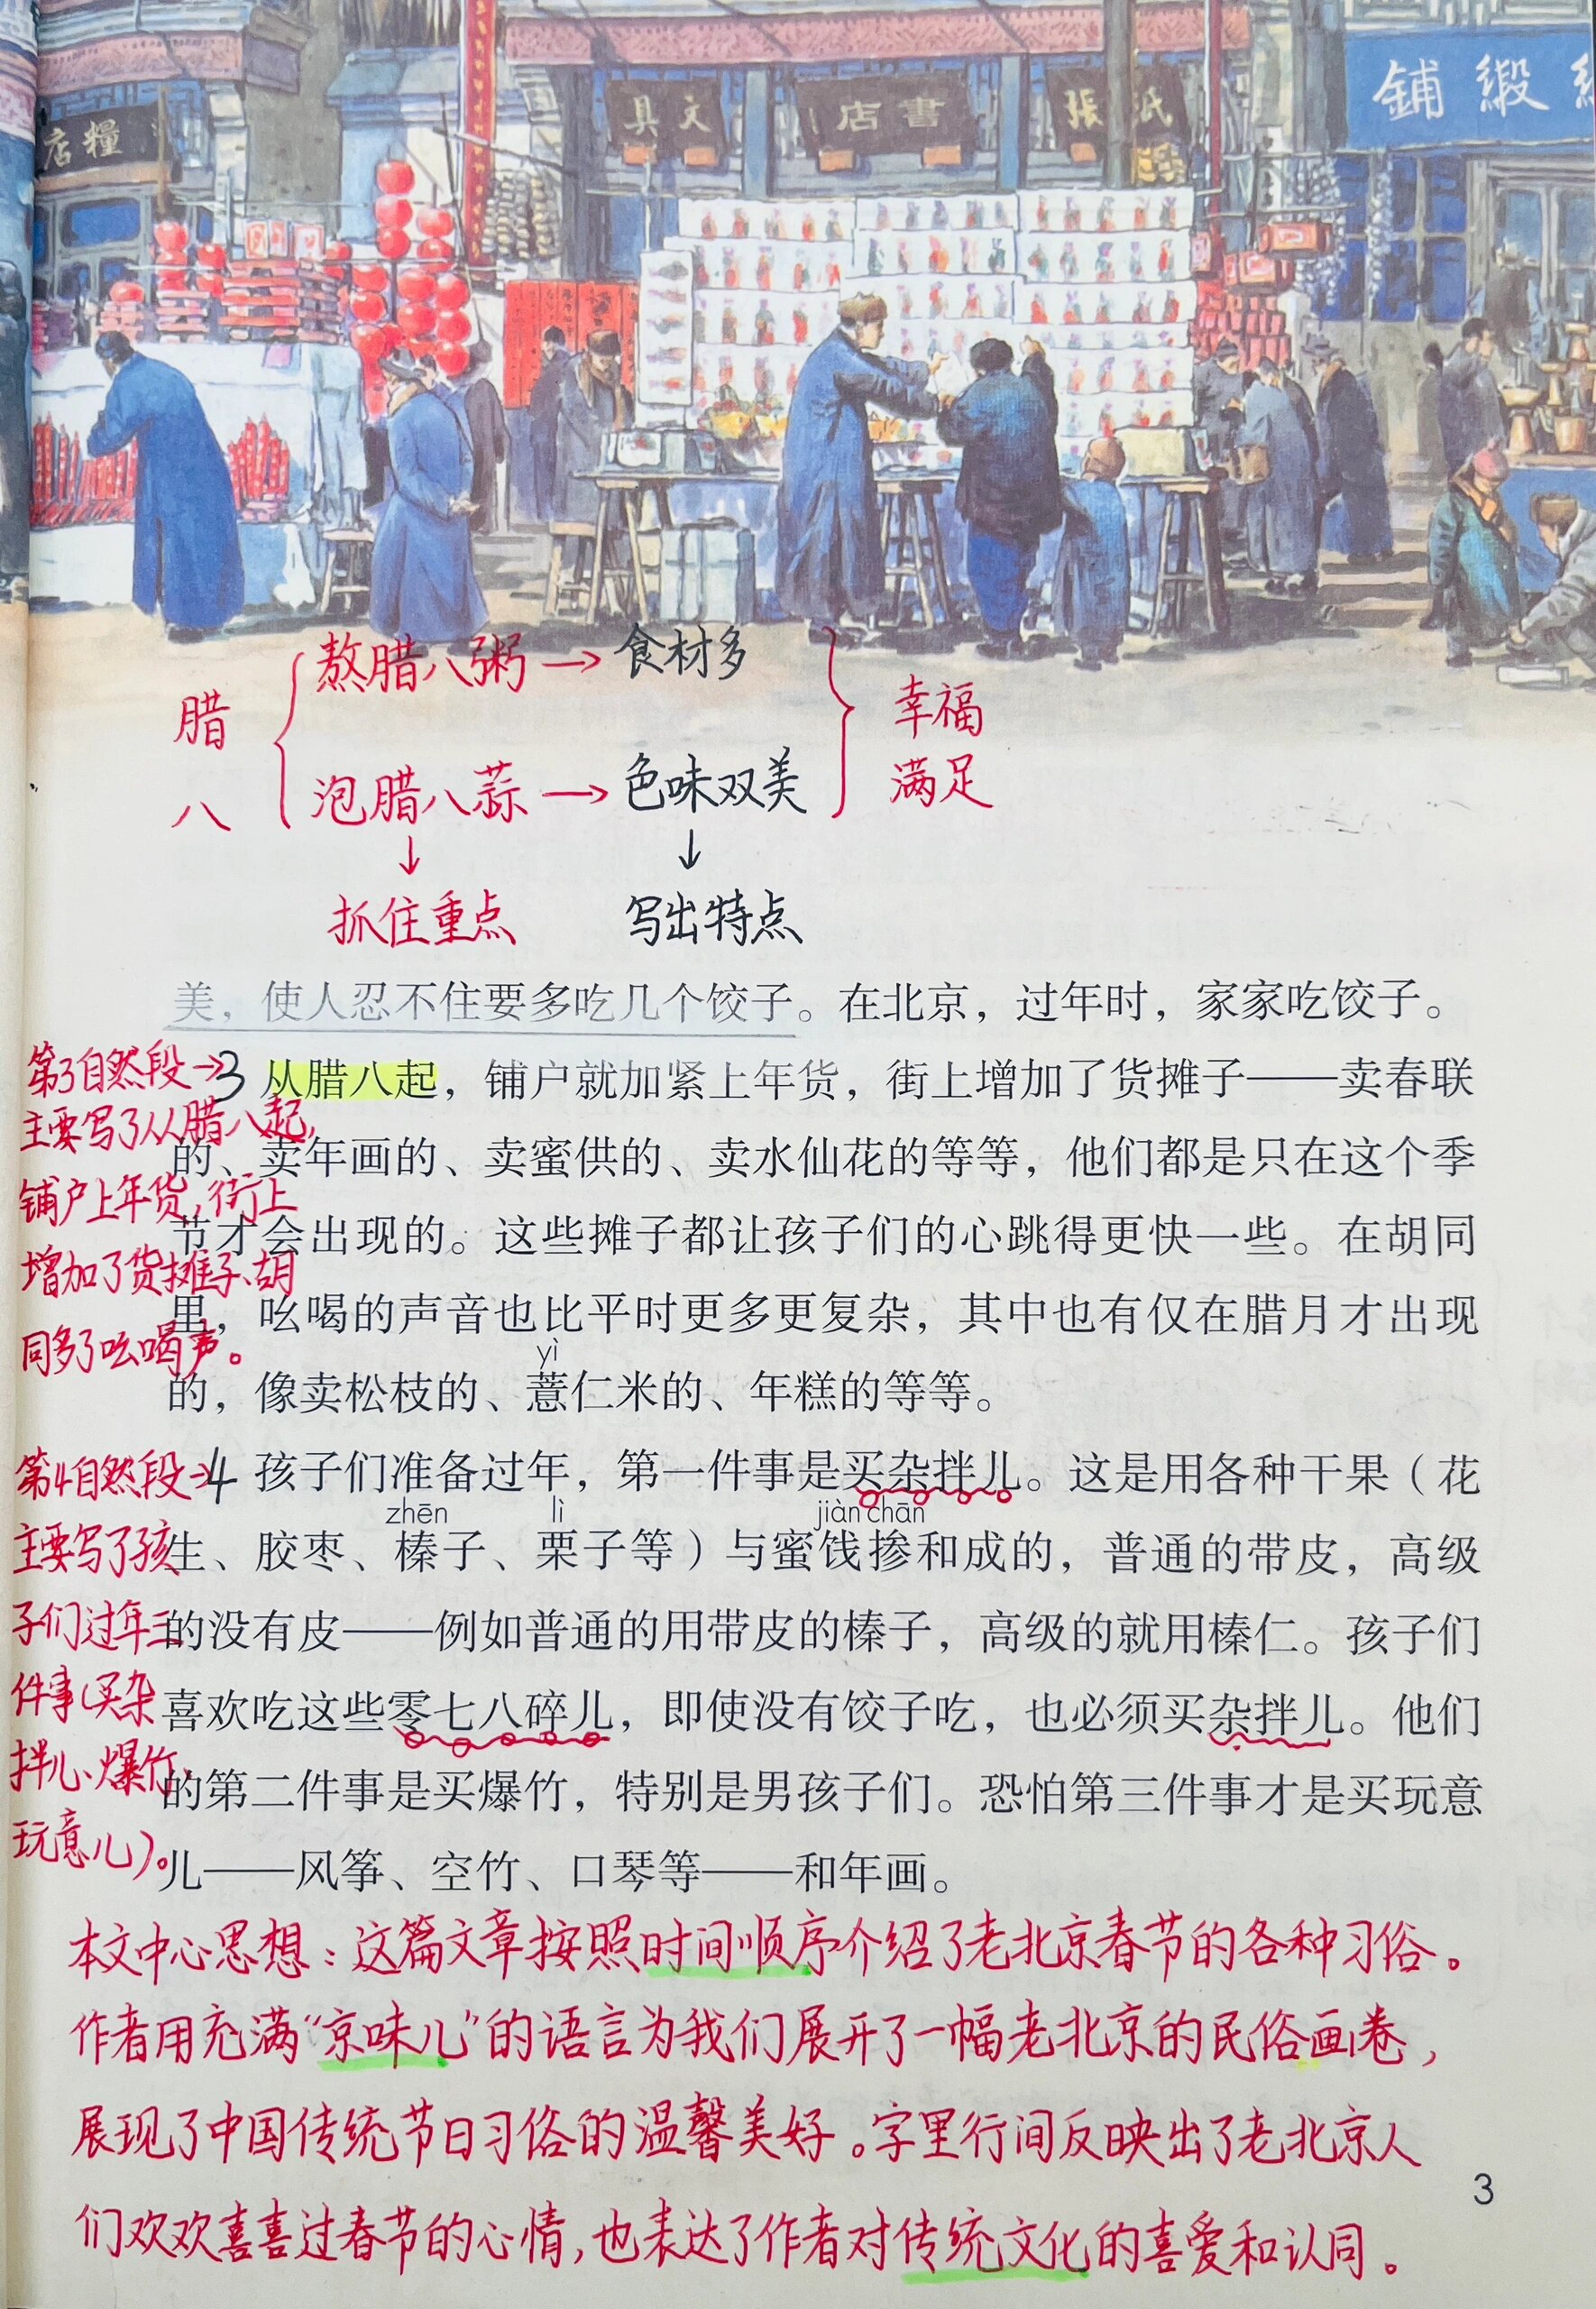 店糧
具文
店書
張紙
鋪緞
熬腊八粥→食材多
腊八
幸福
满足
泡腊八蒜→色味双美
↓ ↓
抓住重点 写出特点
美，使人忍不住要多吃几个饺子。在北京，过年时，家家吃饺子。
第3自然段→3 从腊八起，铺户就加紧上年货，街上增加了货摊子——卖春联
主要写了从腊八起，
的、卖年画的、卖蜜供的、卖水仙花的等等，他们都是只在这个季
铺户上年货，街上
节才会出现的。这些摊子都让孩子们的心跳得更快一些。在胡同
增加了货摊子、胡
里，吆喝的声音也比平时更多更复杂，其中也有仅在腊月才出现
同多了吆喝声。
yì
的，像卖松枝的、薏仁米的、年糕的等等。
第4自然段→4 孩子们准备过年，第一件事是买杂拌儿。这是用各种干果（花
zhēn lì jiàn chān
主要写了孩
生、胶枣、榛子、栗子等）与蜜饯掺和成的，普通的带皮，高级
子们过年三
的没有皮——例如普通的用带皮的榛子，高级的就用榛仁。孩子们
件事（买杂
喜欢吃这些零七八碎儿，即使没有饺子吃，也必须买杂拌儿。他们
拌儿、爆竹、
的第二件事是买爆竹，特别是男孩子们。恐怕第三件事才是买玩意
玩意儿）。
儿——风筝、空竹、口琴等——和年画。
本文中心思想：这篇文章按照时间顺序介绍了老北京春节的各种习俗。
作者用充满“京味儿”的语言为我们展开了一幅老北京的民俗画卷，
展现了中国传统节日习俗的温馨美好。字里行间反映出了老北京人
3
们欢欢喜喜过春节的心情，也表达了作者对传统文化的喜爱和认同。